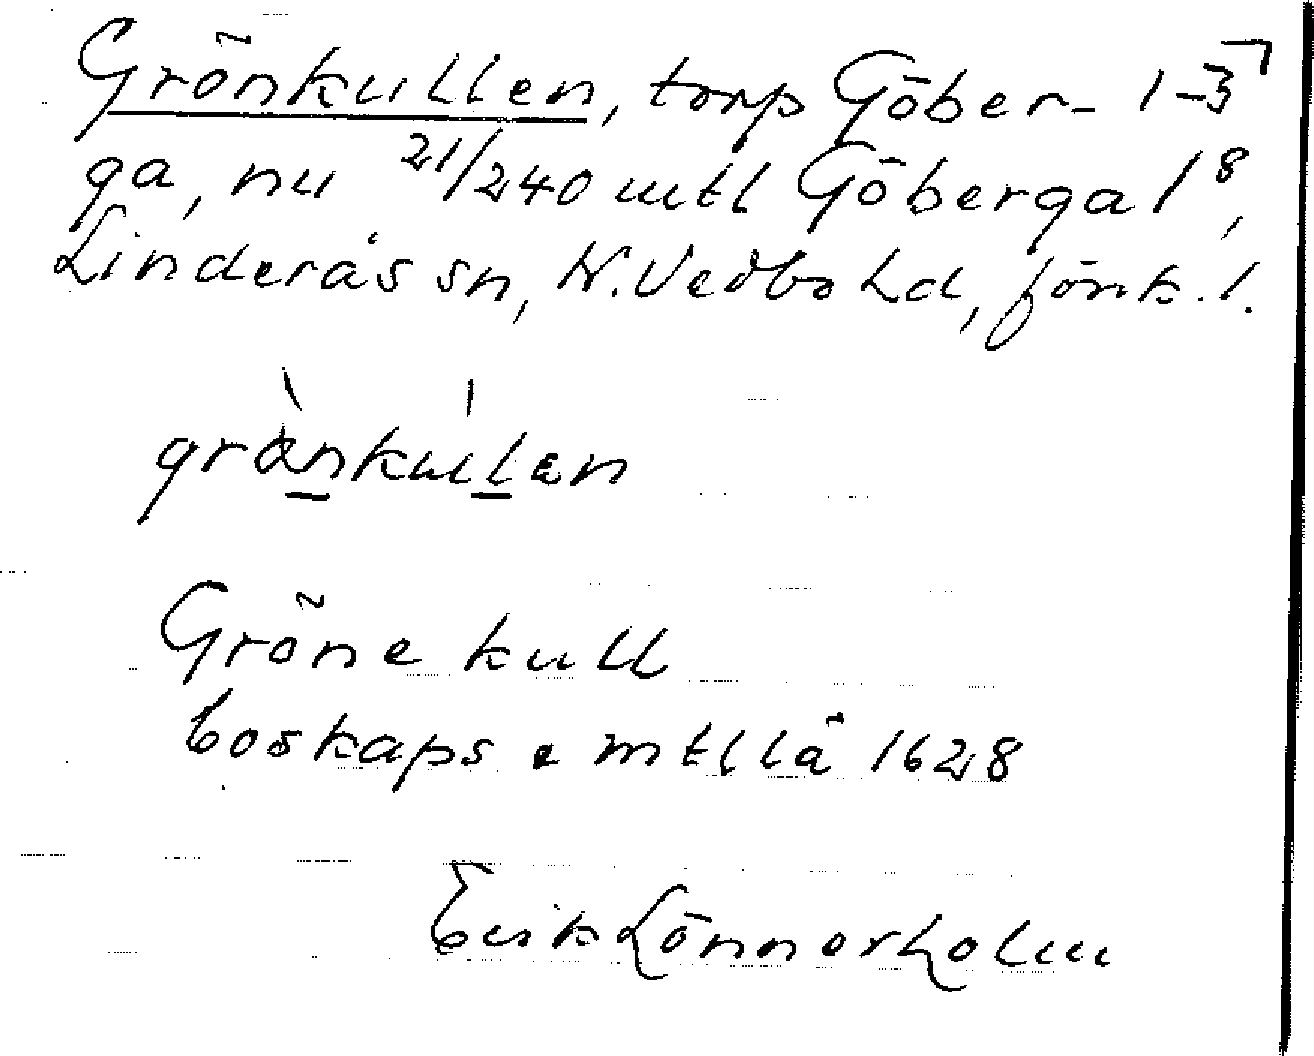 Grönkullen, torp Göber- 1-3
ga, nu 21/240 mtl Göberga 1⁸,
Linderås sn, N. Vedbo hd, Jönk. l.
grànkúlen
Gröne kull
boskaps o mtllä 1628
Erik Lönnerholm